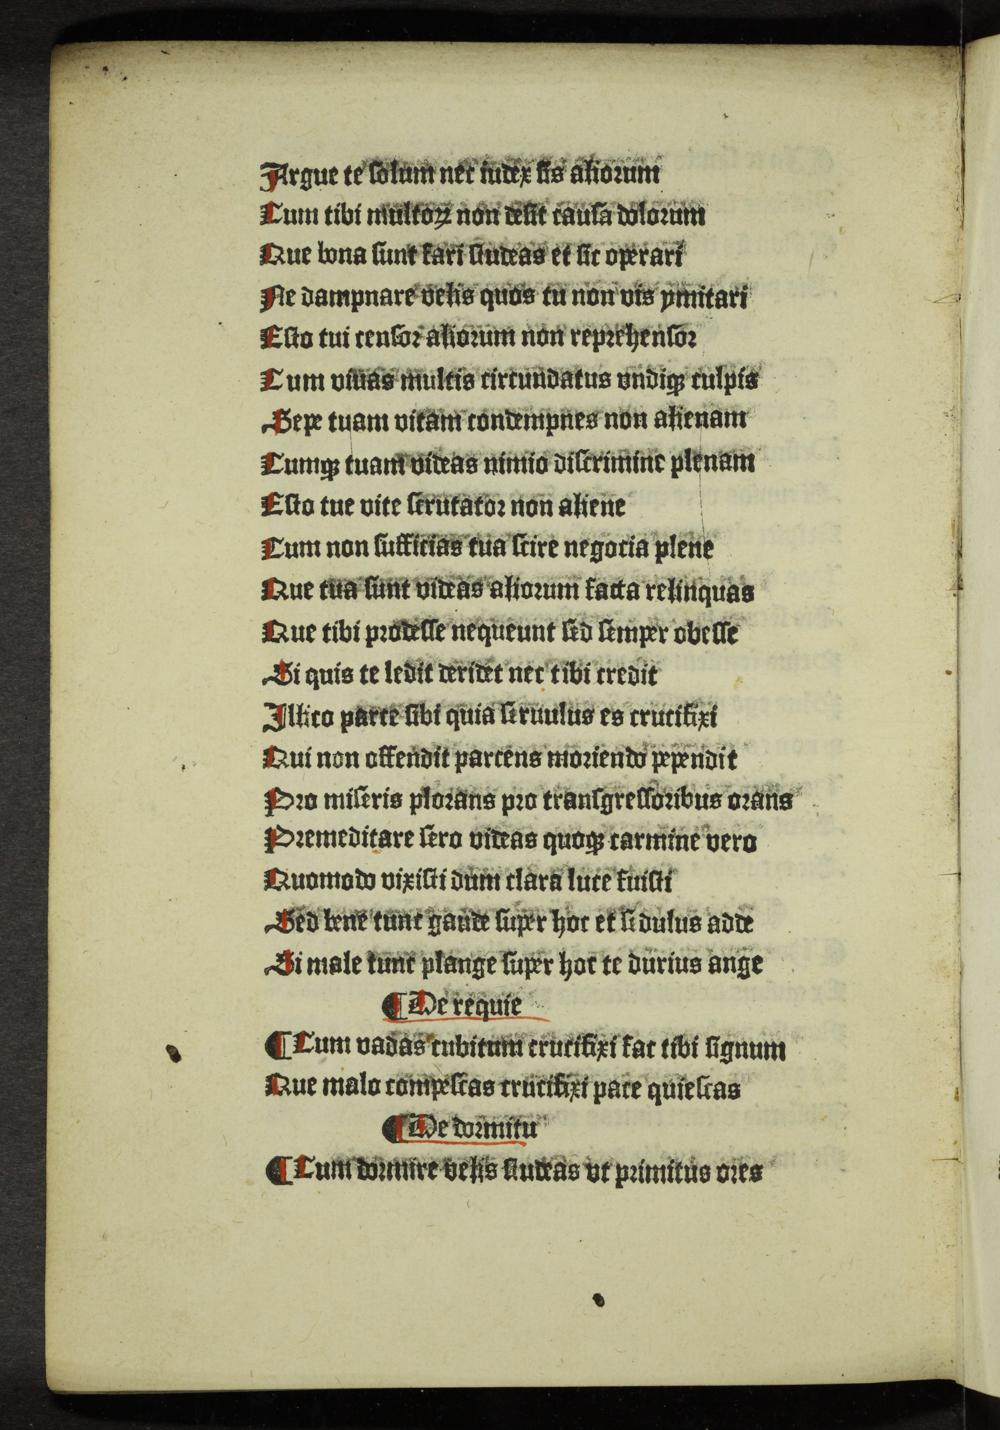 Argue te solum nec iudex sis aliorum
Cum tibi multoꝝ non desit causa dolorum
Que bona sunt fari studeas et sic operari
Ne dampnare velis quos tu non vis ymitari
Esto tui censor aliorum non reprehensor
Cum viuas multis circundatus vndiqꝫ culpis
Sepe tuam vitam contempnes non alienam
Cumqꝫ tuam videas nimio discrimine plenam
Esto tue vite scrutator non aliene
Cum non sufficias tua scire negocia plene
Que tua sunt videas aliorum facta relinquas
Que tibi prodesse nequeunt sed semper obesse
Si quis te ledit deridet nec tibi credit
Illico parce sibi quia seruulus es crucifixi
Qui non offendit parcens moriendo pependit
Pro miseris plorans pro transgressoribus orans
Premeditare sero videas quoqꝫ carmine vero
Quomodo vixisti dum clara luce fuisti
Sed bene tunc gaude super hoc et sedulus adde
Si male tunc plange super hoc te durius ange
¶ De requie
¶ Cum vadas cubitum crucifixi fac tibi signum
Que malo compescas crucifixi pace quiescas
¶ De dormitu
¶ Cum dormire velis studeas vt primitus ores